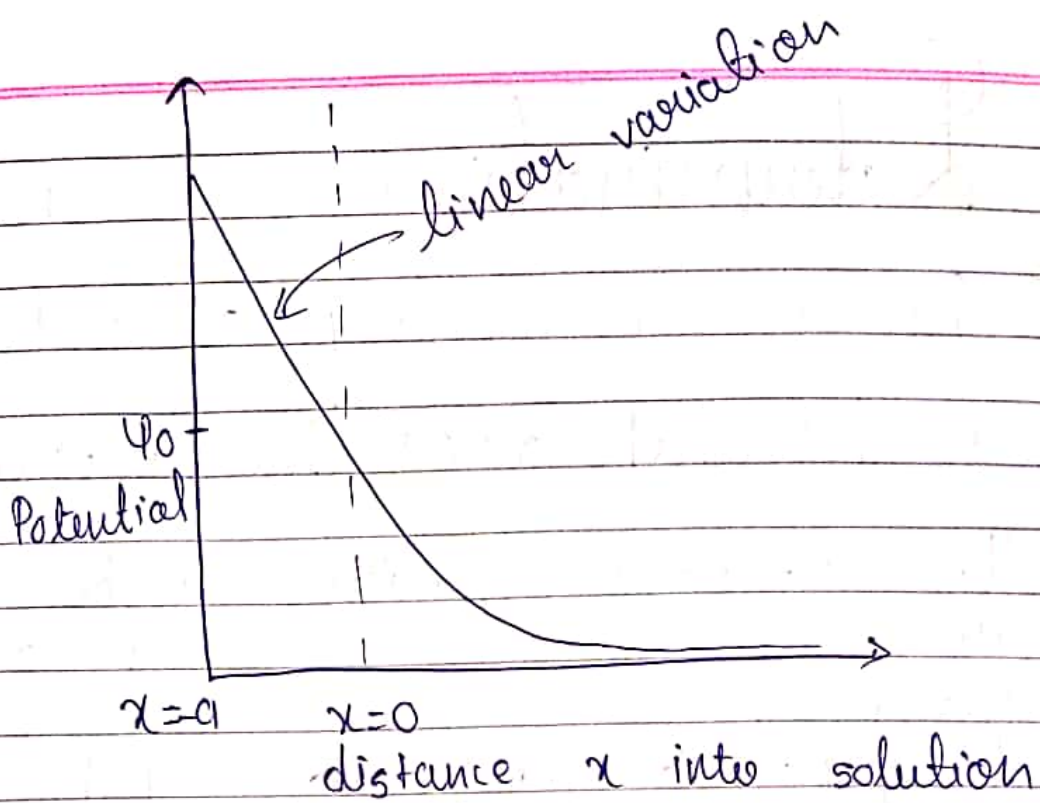 linear variation
φ0
Potential
x=-a
x=0
distance x into solution